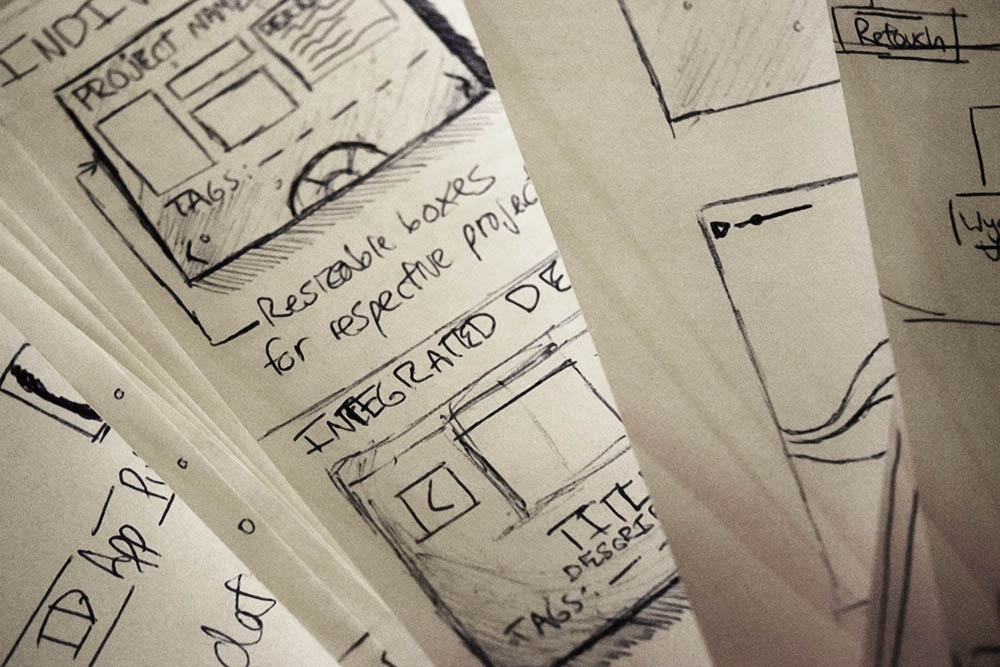 INDIV
PROJECT NAME
TAGS:
Resizeable boxes
for respective projec
INTEGRATED DE
TITL
DESCRIP
TAGS:
Retouch
ID App Pr